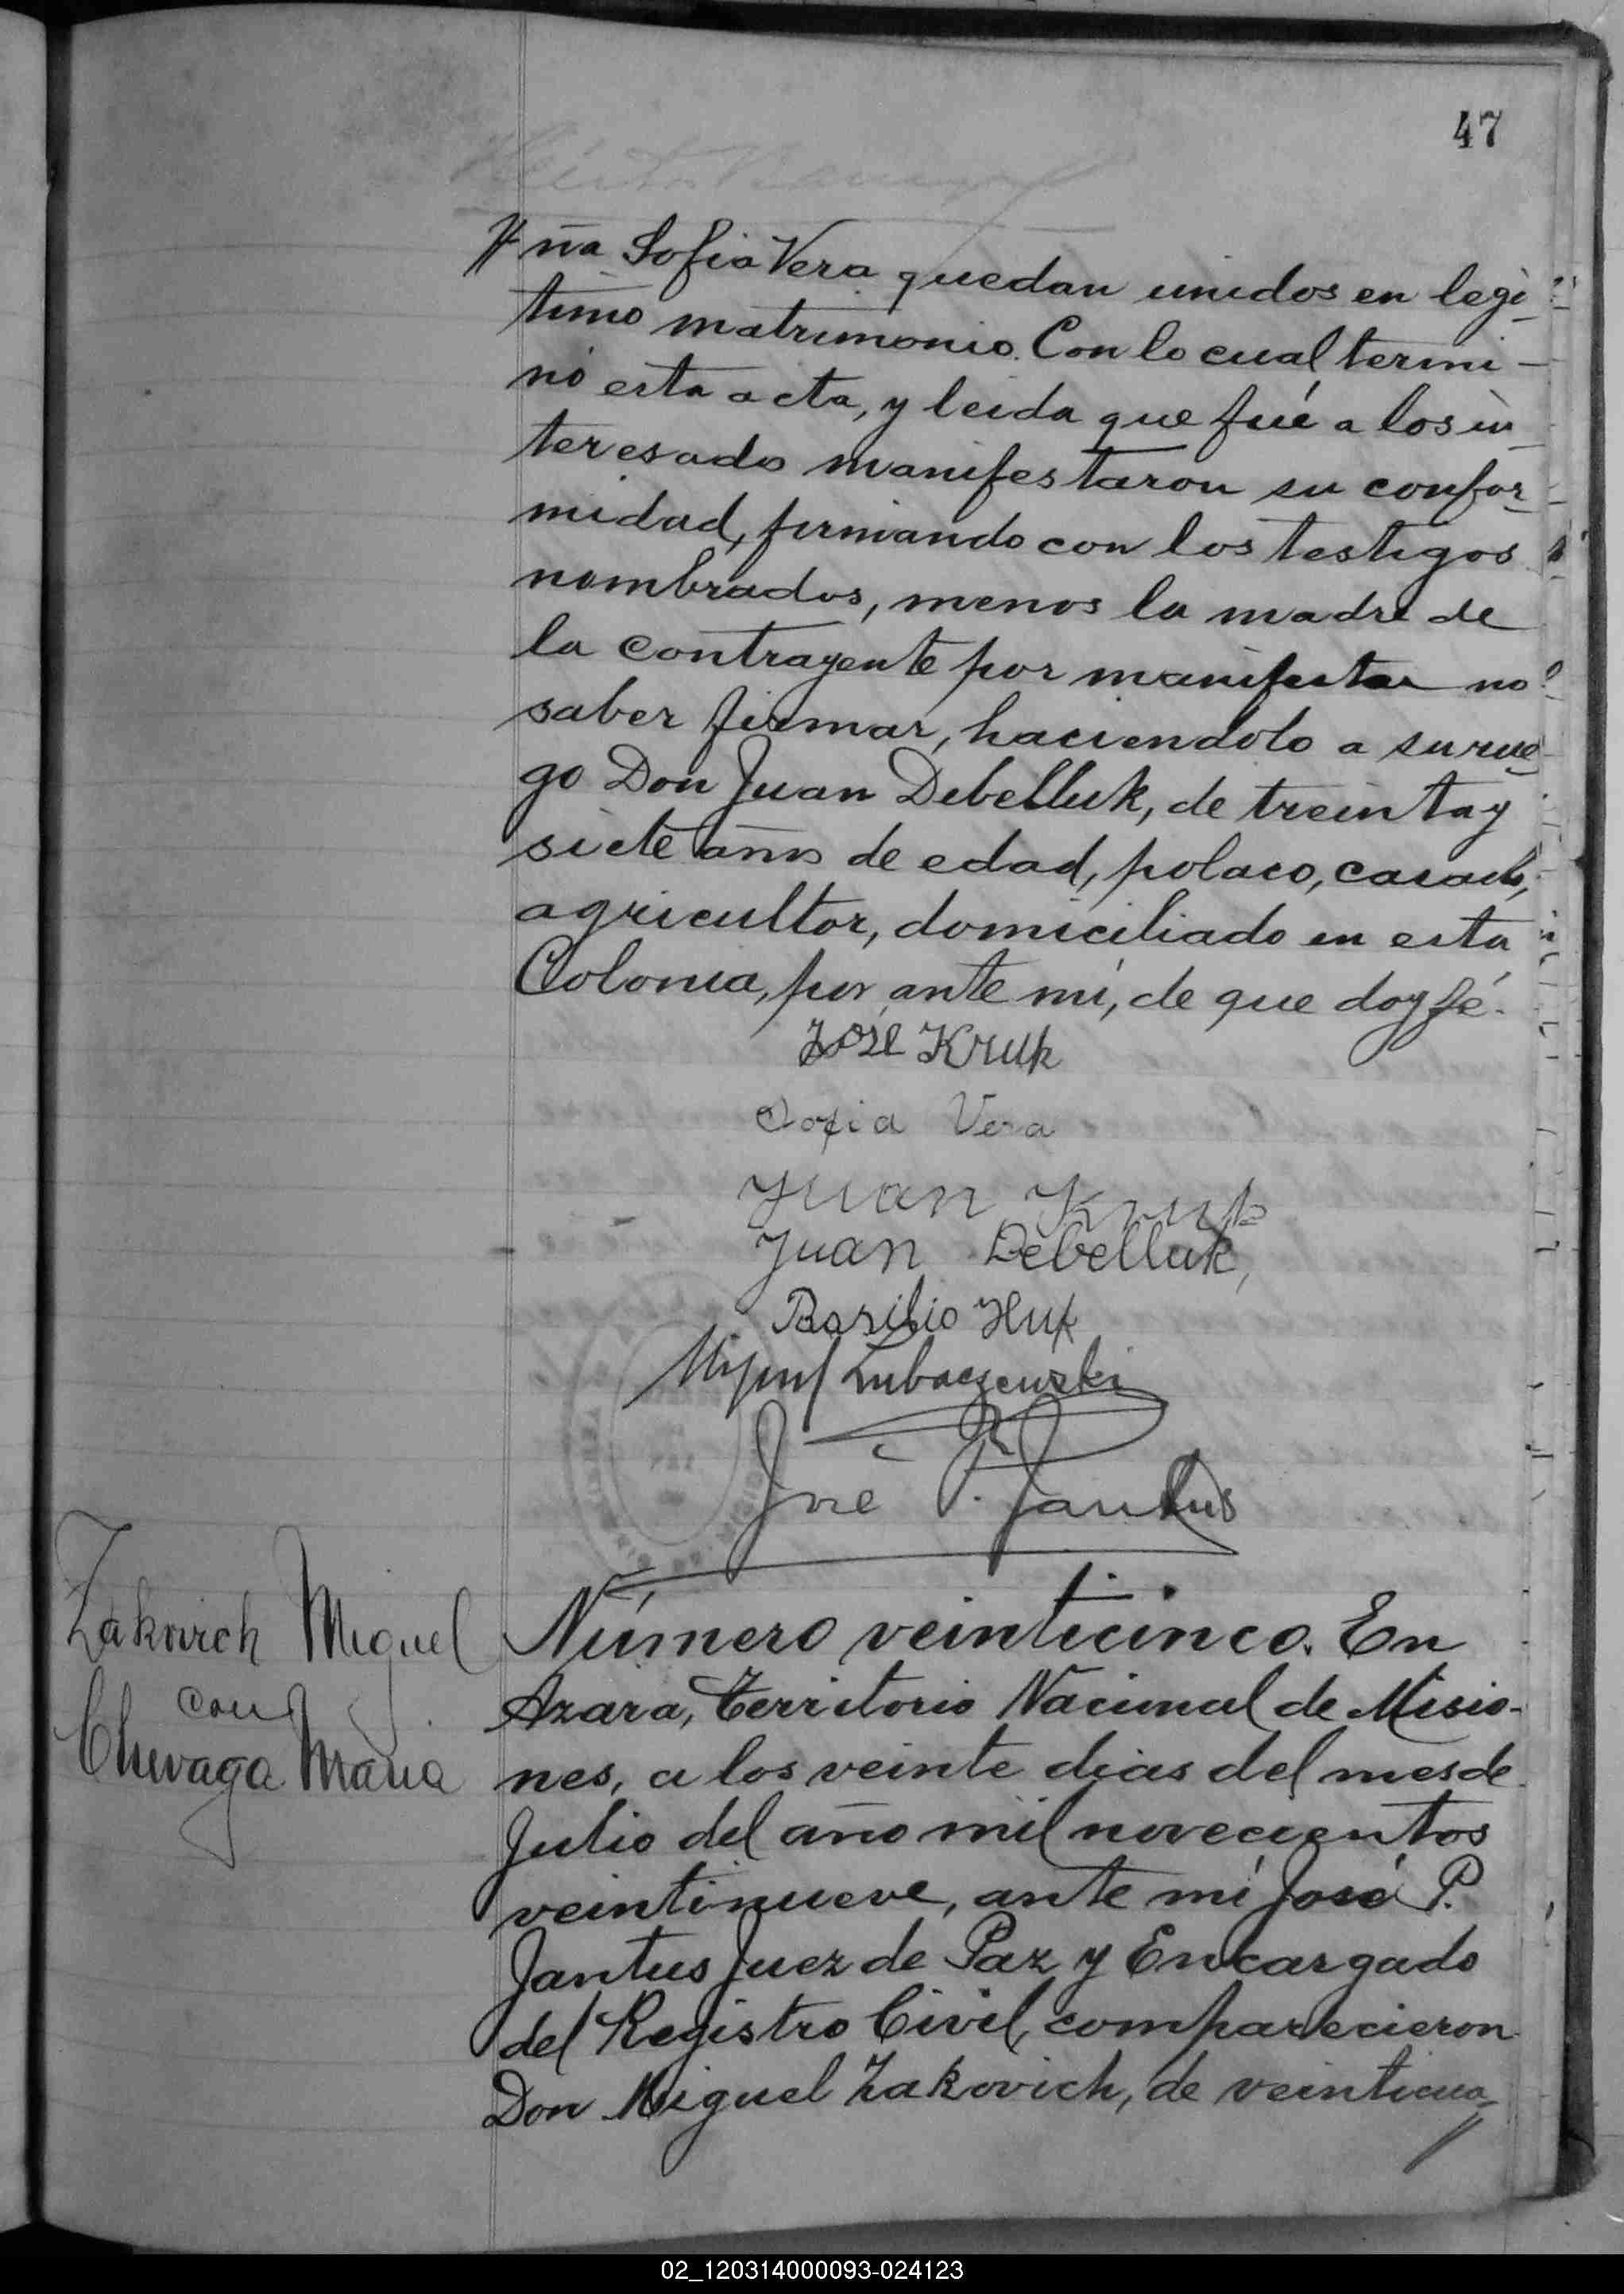 47
ña Sofia Vera quedan unidos en legi-
timo matrimonio. Con lo cual termi-
nó esta acta, y leida que fué a los in-
teresado manifestaron su confor-
midad, firmando con los testigos
nombrados, menos la madre de
la contrayente por manifestar no
saber firmar, haciendolo a su rue-
go Don Juan Debelluk, de treinta y
siete años de edad, polaco, casado,
agricultor, domiciliado en esta
Colonia, por ante mí, de que doy fé.
José Kruk
Sofia Vera
Juan Kruk
Juan Debelluk,
Basilio Huk
Miguel Lubaczewski
José P. Jantus
Zakovich Miguel
con
Chevaga Maria
Número veinticinco. En
Azara, Territorio Nacional de Misio-
nes, a los veinte dias del mes de
Julio del año mil novecientos
veintinueve, ante mí José P.
Jantus Juez de Paz y Encargado
del Registro Civil, comparecieron
Don Miguel Zakovich, de veinticua-
02_120314000093-024123